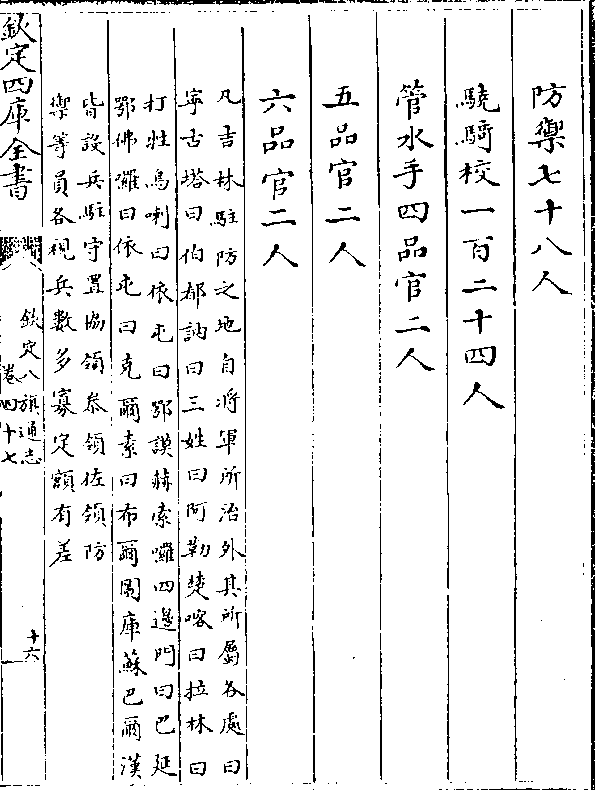 防禦七十八人
驍騎校一百二十四人
管水手四品官二人
五品官二人
六品官二人
凡吉林駐防之地自將軍所治外其所屬各處曰
寧古塔曰伯都訥曰三姓曰阿勒楚喀曰拉林曰
打牲烏喇曰依屯曰鄂謨赫索囉四邊門曰巴延
鄂佛囉曰依屯曰克爾素曰布爾圖庫蘇巴爾漢
皆設兵駐守置協領叅領佐領防
禦等員各視兵數多寡定額有差
欽定四庫全書
欽定八旗通志
卷四十七
十六